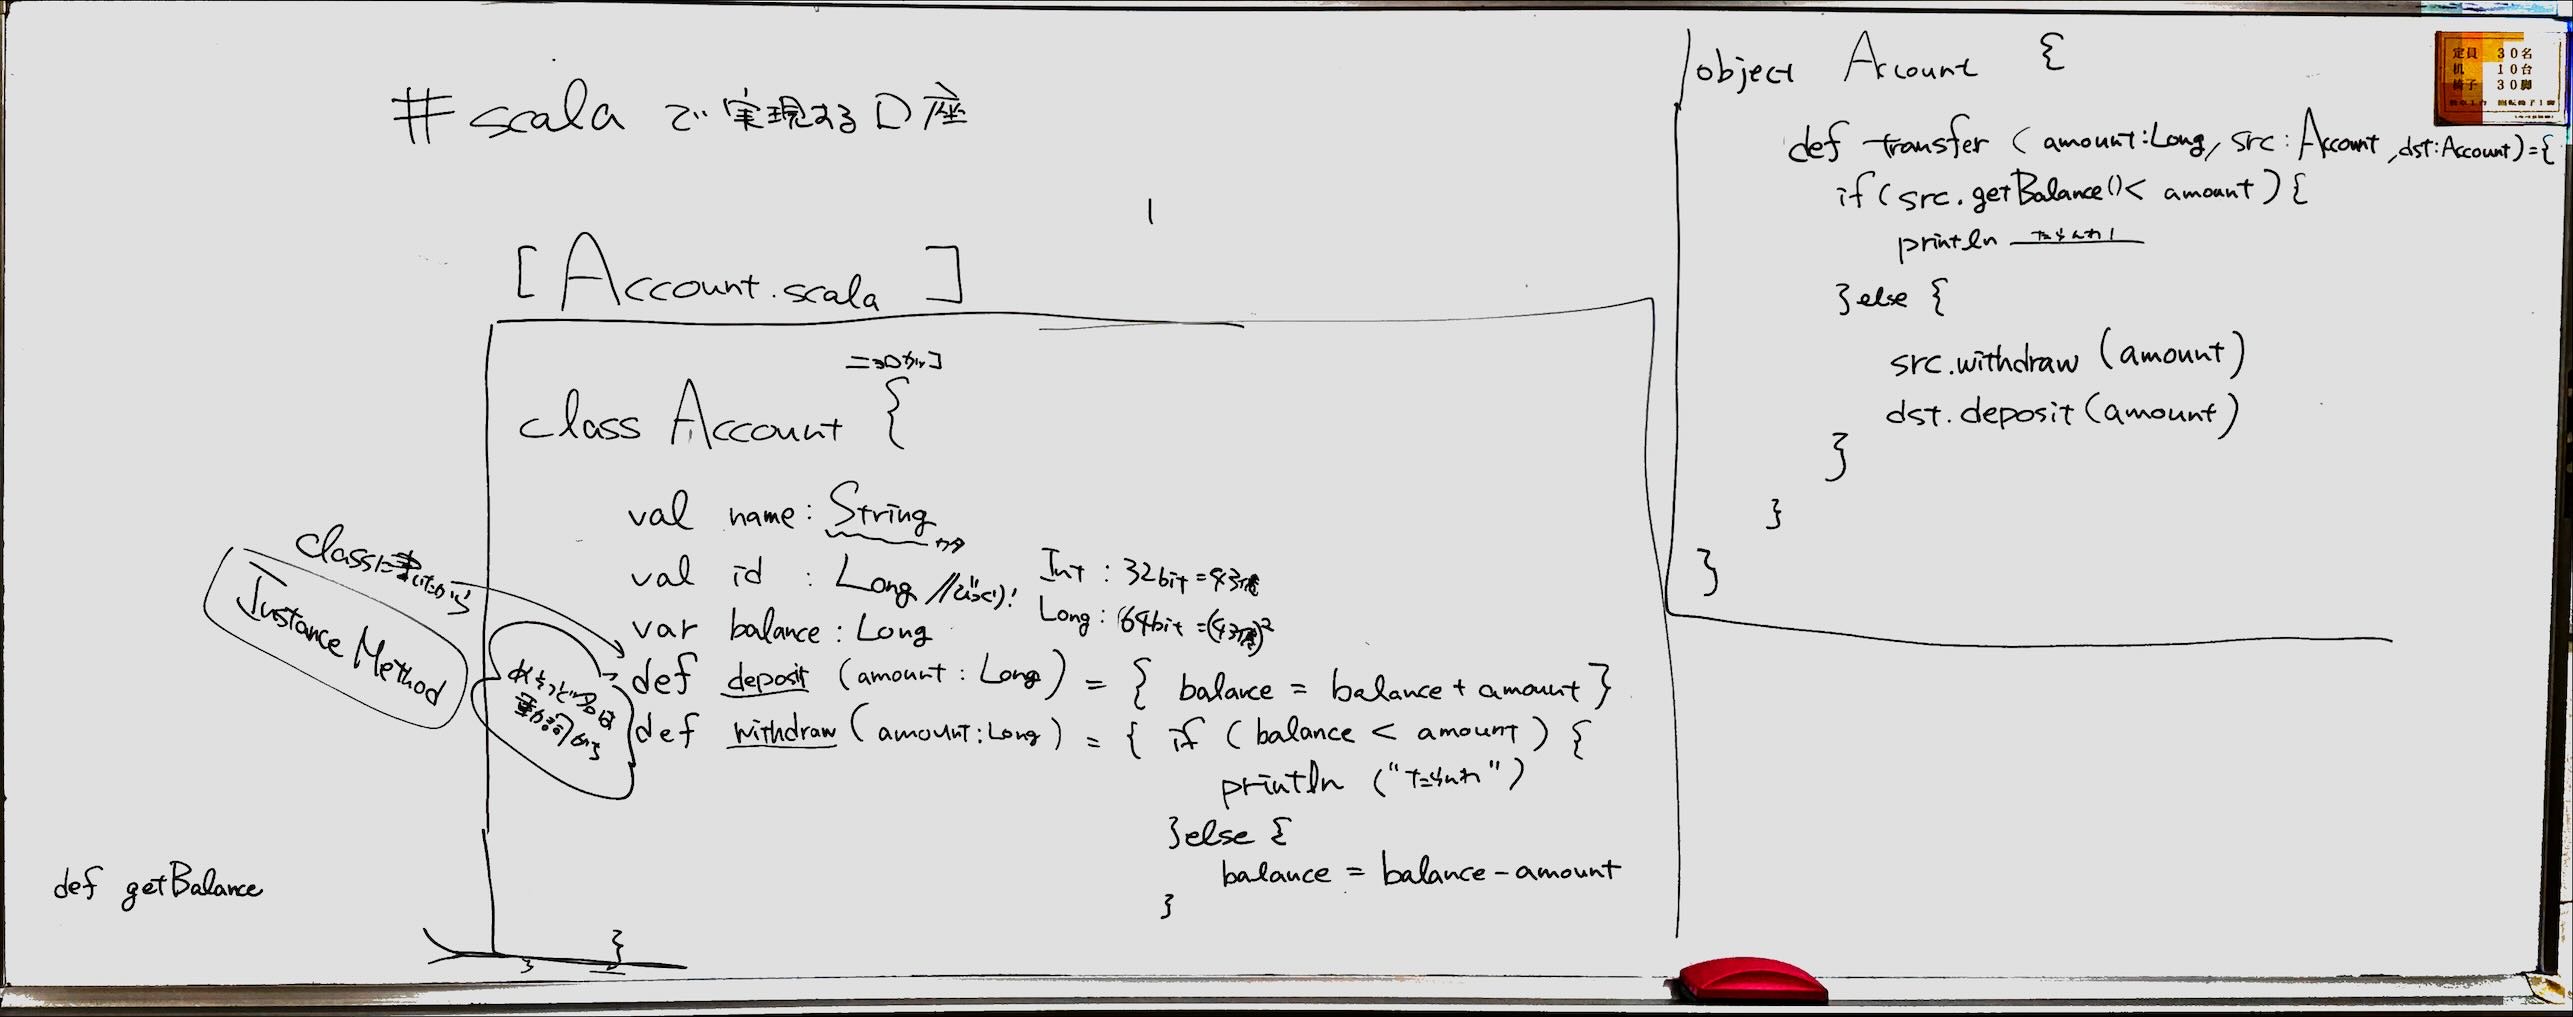 #scalaで実現する口座
[Account.scala]
ニョロかっこ
class Account {
val name: String
val id : Long // Int : 32bit = 43億
Long : 64bit = (43億)²
var balance : Long
def deposit (amount : Long) = { balance = balance + amount }
def withdraw (amount : Long) = { if (balance < amount) {
println ("たりんわ")
}else {
balance = balance - amount
}
}
}
classに書いたから
Instance Method
めそっど名は
動詞から
def getBalance
object Account {
def transfer (amount:Long, src: Account, dst:Account)={
if (src.getBalance()< amount) {
println たりんわ!
}else {
src.withdraw (amount)
dst.deposit (amount)
}
}
}
定員 30名
机 10台
椅子 30脚